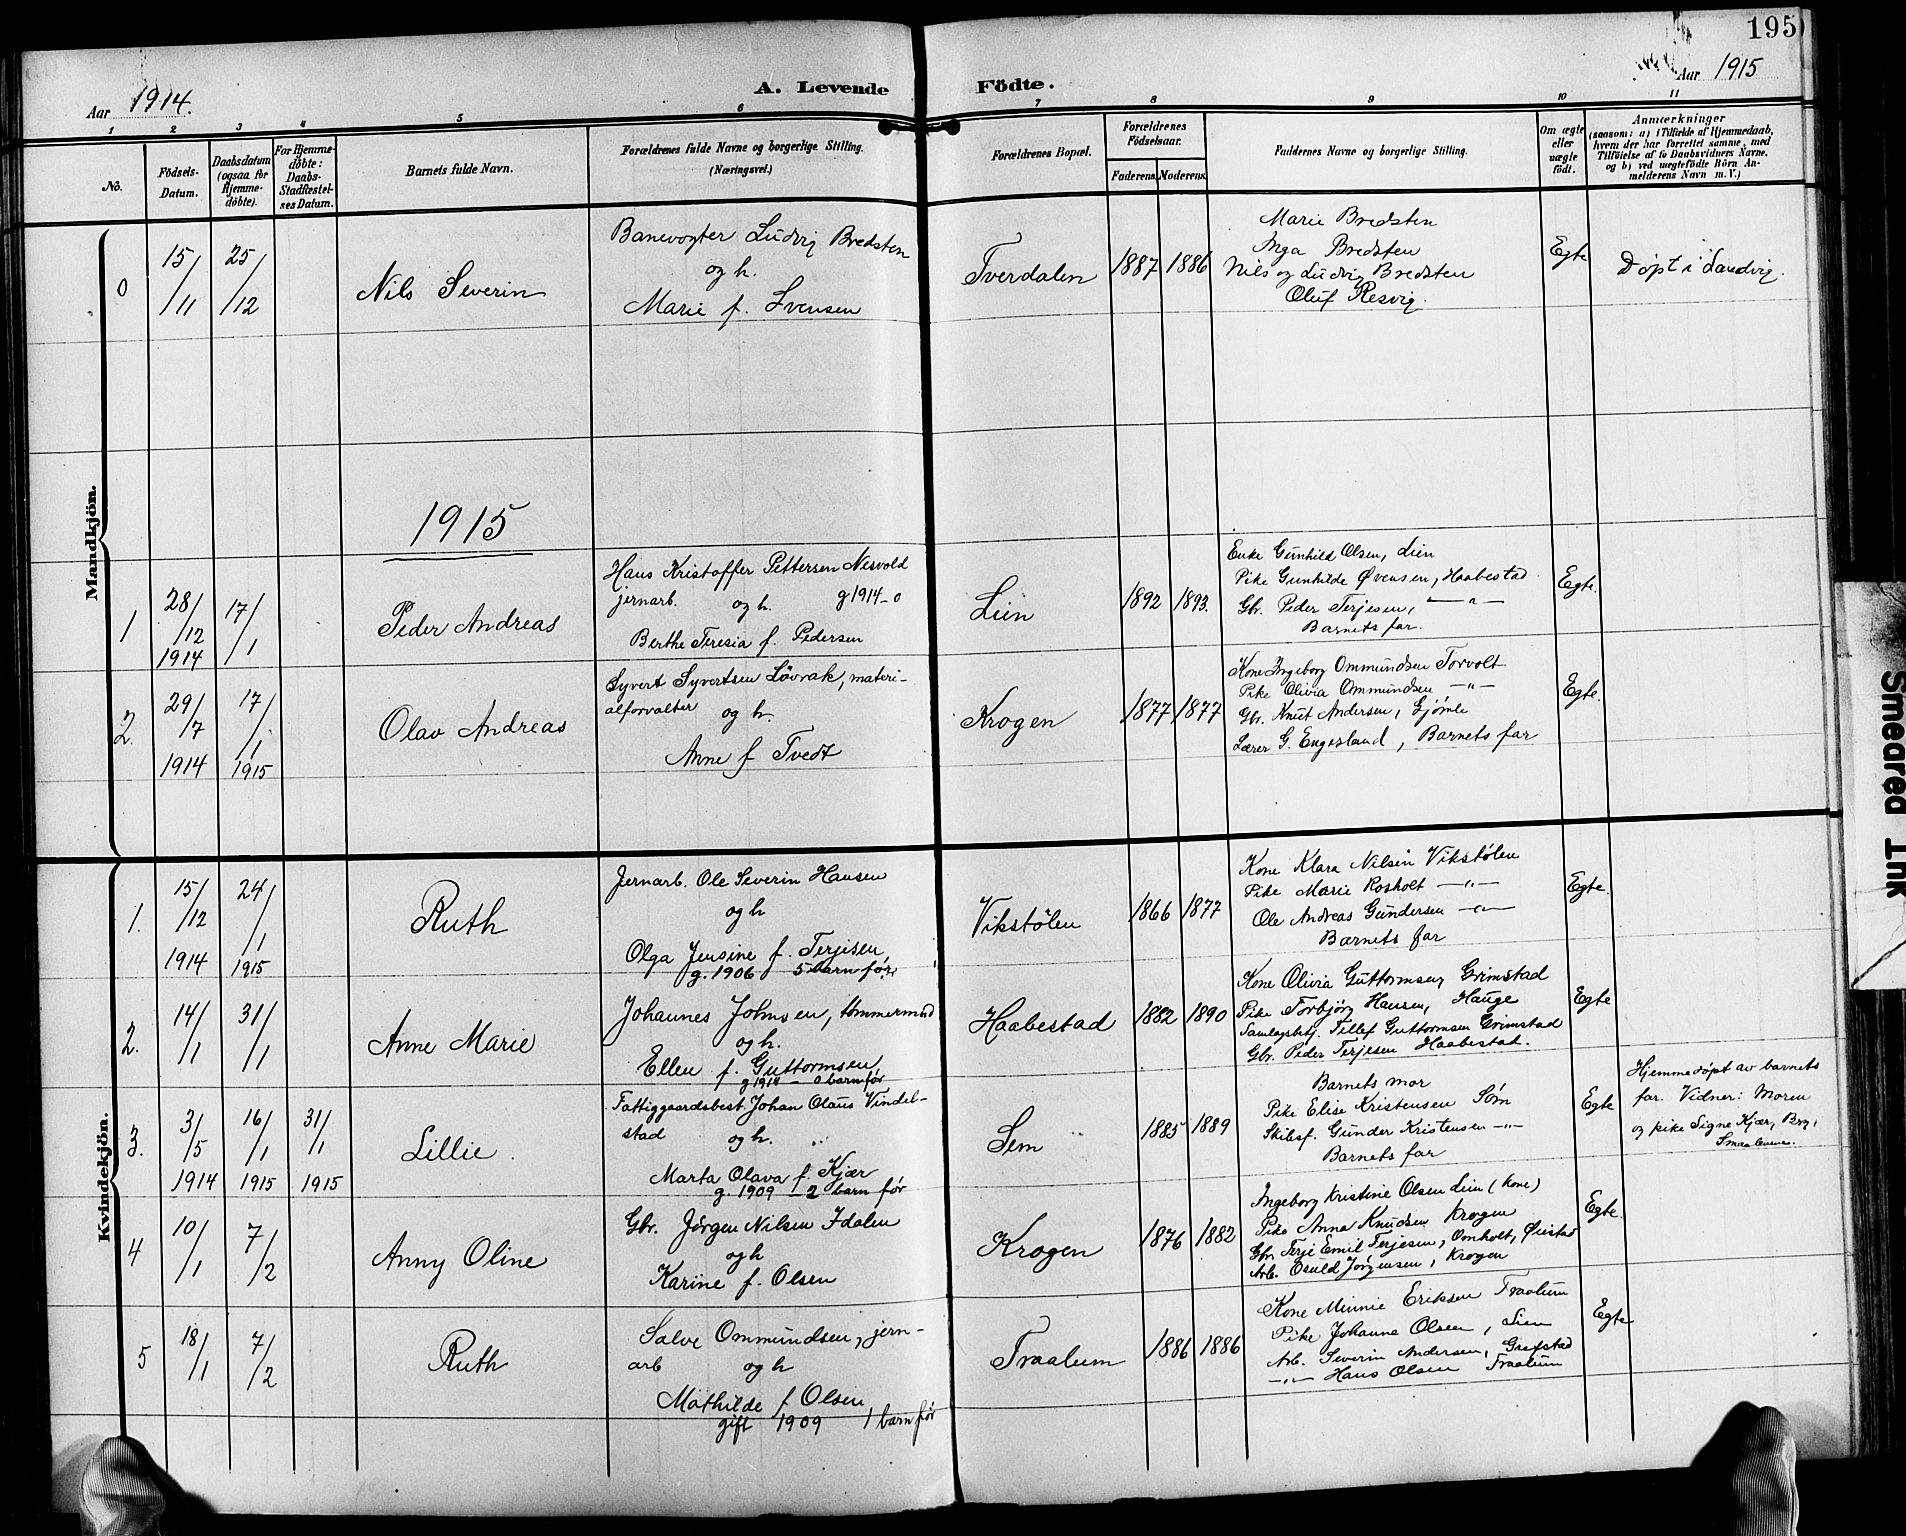 195
Aar 1914.
A. Levende Födte.
Aar 1915
1 2 3 4 5 6 7 8 9 10 11
No.
Födsels-
Datum.
Daabsdatum
(ogsaa for
Hjemme-
döbte).
For Hjemme-
döbte:
Daabs-
Stadfæstel-
ses Datum.
Barnets fulde Navn.
Forældrenes fulde Navne og borgerlige Stilling.
(Næringsvei.)
Forældrenes Bopæl.
Forældrenes
Födselsaar.
Faderens. Moderens.
Faddernes Navne og borgerlige Stilling.
Om ægte
eller
uægte
födt.
Anmærkninger
(saasom: a) i Tilfælde af Hjemmedaab,
hvem der har forrettet samme, med
Tilföielse af to Daabsvidners Navne,
og b) ved uægtefödte Börn An-
melderens Navn m. V.)
Mandkjön.
0
15/11
25/12
Nils Severin
Banevogter Ludvig Bredsten
og h.
Marie f. Svensen
Tverdalen
1887
1886
Marie Bredsten
Inga Bredsten
Nils og Ludvig Bredsten
Oluf Resvig.
Egte
Døpt i Landvig.
1915
1
28/12
1914
17/1
Peder Andreas
Hans Kristoffer Pettersen Nesvold
jernarb. og h. g 1914 - 0
Berthe Teresia f. Pedersen
Lien
1892
1893.
Enke Gunhild Olsen, Lien
Pike Gunhilde Øvensen, Haabestad
Gbr. Peder Terjesen, —"—
Barnets far.
Egte.
2.
29/7
1914
17/1
1915
Olav Andreas
Syvert Syvertsen Lövrak, materi-
alforvalter og h.
Anne f Tvedt
Krogen
1877
1877
Kone Ingeborg Ommundsen Torvolt
Pike Olivia Ommundsen —"—
Gbr. Knut Andersen, Gjømle
Lærer G. Engesland, Barnets far
Egte.
Kvindekjön.
1.
15/12
1914
24/1
1915
Ruth
Jernarb. Ole Severin Hansen
og h
Olga Jensine f. Terjesen,
g. 1906 5 barn før,
Vikstølen
1866
1877
Kone Klara Nilsen Vikstølen
Pike Marie Rosholt —"—
Ole Andreas Gundersen —"—
Barnets far
Egte.
2.
14/1
31/1
Anne Marie
Johannes Johnsen, tømmermand
og h.
Ellen f. Guttormsen,
g 1914 - 0 barn før
Haabestad
1882
1890
Kone Olivia Guttormsen, Grimstad
Pike Torbjørg Hansen, Hauge
Samlagsbetj. Tellef Guttormsen Grimstad
Gbr. Peder Terjesen Haabestad.
Egte
3.
3/5
1914
16/1
1915
31/1
1915
Lillie.
Fattiggaardsbest. Johan Olaus Vindel-
stad og h.
Marta Olava f. Kjær
g. 1909 - 2 barn før
Sem
1885
1889
Barnets mor
Pike Elise Kristensen Søm
Skibsf. Gunder Kristensen —"—
Barnets far
Egte
Hjemmedøpt av barnets
far. Vidner: Moren
og pike Signe Kjær,
Smaalenene.
4
10/1
7/2
Anny Oline
Gbr. Jørgen Nilsen Idalen
og h
Karine f. Olsen
Krogen
1876
1882
Ingeborg Kristine Olsen Lien (kone)
Pike Anna Knudsen Krogen
Gbr. Terje Emil Terjesen, Omholt, Øiestad
Arb. Osuld Jørgensen, Krogen
Egte.
5
18/1
7/2
Ruth
Salve Ommundsen, jern-
arb og h
Mathilde f Olsen
gift 1909 1 barn før
Traalum
1886
1886
Kone Minnie Eriksen Traalum
Pike Johanne Olsen, Lien
Arb. Severin Andersen, Grefstad
—"— Hans Olsen Traalum
Egte
Smeared Ink